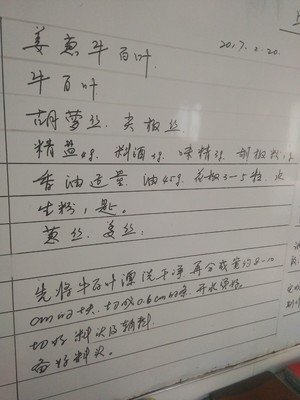 姜葱牛百叶 2017.2.20.
牛百叶
胡萝丝. 尖椒丝.
精盐4g. 料酒3g. 味精3g. 胡椒粉
香油适量. 油45g. 花椒3-5粒. 水
生粉1匙.
葱丝. 姜丝:
先将牛百叶漂洗干净, 再分成宽约8-10
cm的块. 切成0.6cm的条. 开水
切好料头及辅料.
备好料头.